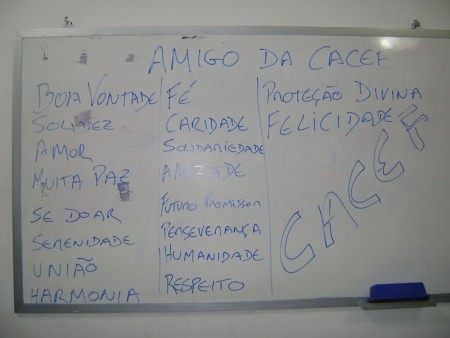 AMIGO DA CACEF
BOA VONTADE
SOLIDEZ
AMOR
MUITA PAZ
SE DOAR
SERENIDADE
UNIÃO
HARMONIA
FÉ
CARIDADE
SOLIDARIEDADE
AMIZADE
FUTURO PROMISSOR
PERSEVERANÇA
HUMANIDADE
RESPEITO
PROTEÇÃO DIVINA
FELICIDADE
CACEF